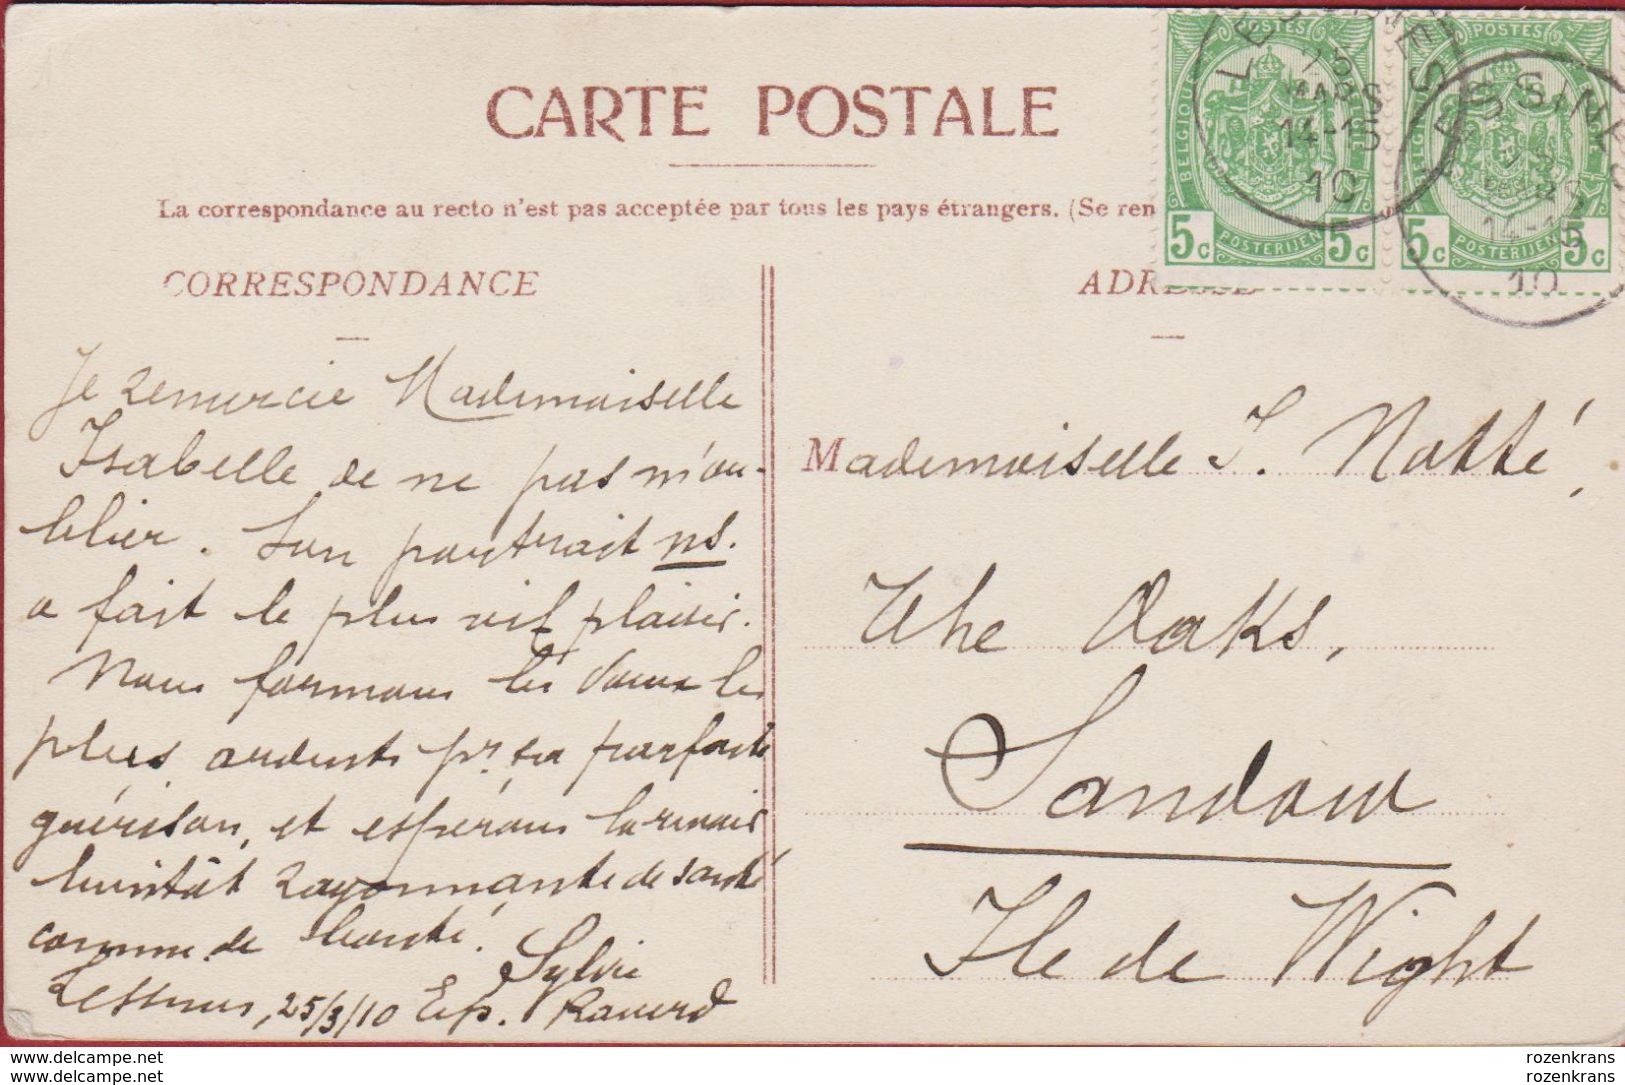 CARTE POSTALE
La correspondance au recto n'est pas acceptée par tous les pays étrangers. (Se ren
CORRESPONDANCE
ADRESSE
POSTES
BELGIQUE
BELGIE
5c POSTERIJEN 5c
POSTES
BELGIQUE
BELGIE
5c POSTERIJEN 5c
LESSINES
25
MARS
14-15
10
LESSINES
25
MARS
14-15
10
Je remercie Mademoiselle
Isabelle de ne pas m'ou-
blier. Son portrait ns.
a fait le plus vif plaisir.
Nous formons les vœux les
plus ardents pr. sa parfaite
guérison, et espérons la revoir
bientôt rayonnante de santé
comme de beauté.
Sylvie
Lessines, 25/3/10 Exp.
Mademoiselle I. Notté,
The Oaks,
Sandown
Ile de Wight
www.delcampe.net
rozenkrans
www.delcampe.net
rozenkrans